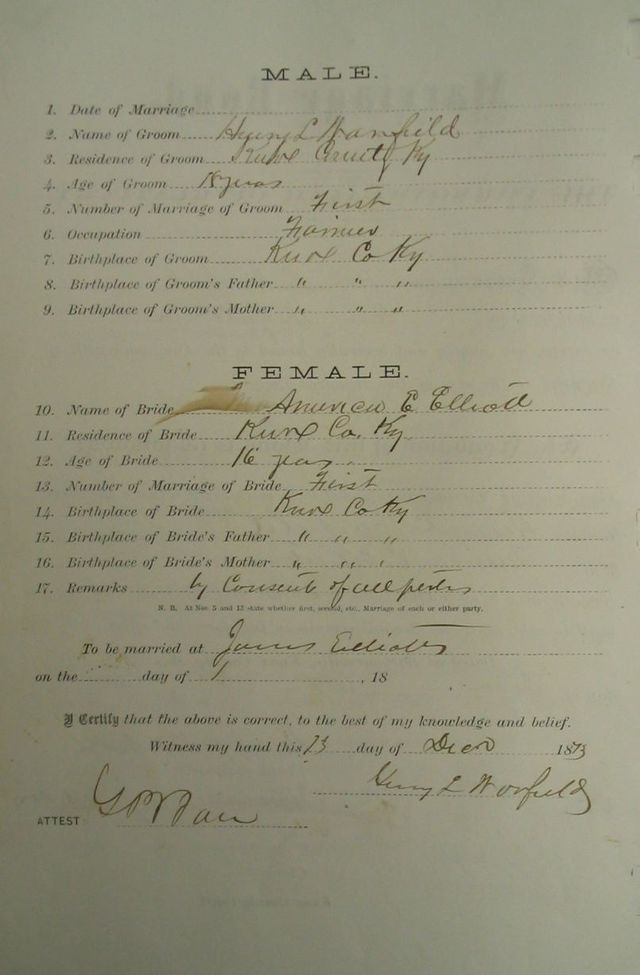 MALE.
1. Date of Marriage
2. Name of Groom Henry L Warfield
3. Residence of Groom Knox County Ky
4. Age of Groom years
5. Number of Marriage of Groom First
6. Occupation Farmer
7. Birthplace of Groom Knox Co Ky
8. Birthplace of Groom's Father " " "
9. Birthplace of Groom's Mother " " "
FEMALE.
10. Name of Bride America E Elliott
11. Residence of Bride Knox Co. Ky
12. Age of Bride 16 years
13. Number of Marriage of Bride First
14. Birthplace of Bride Knox Co Ky
15. Birthplace of Bride's Father " " "
16. Birthplace of Bride's Mother " " "
17. Remarks by Consent of all
N. B. At Nos. 5 and 13 state whether first, second, etc., Marriage of each or either party.
To be married at James Elliotts
on the day of , 18
I Certify that the above is correct, to the best of my knowledge and belief.
Witness my hand this 23 day of 1873
Henry L Warfield
ATTEST